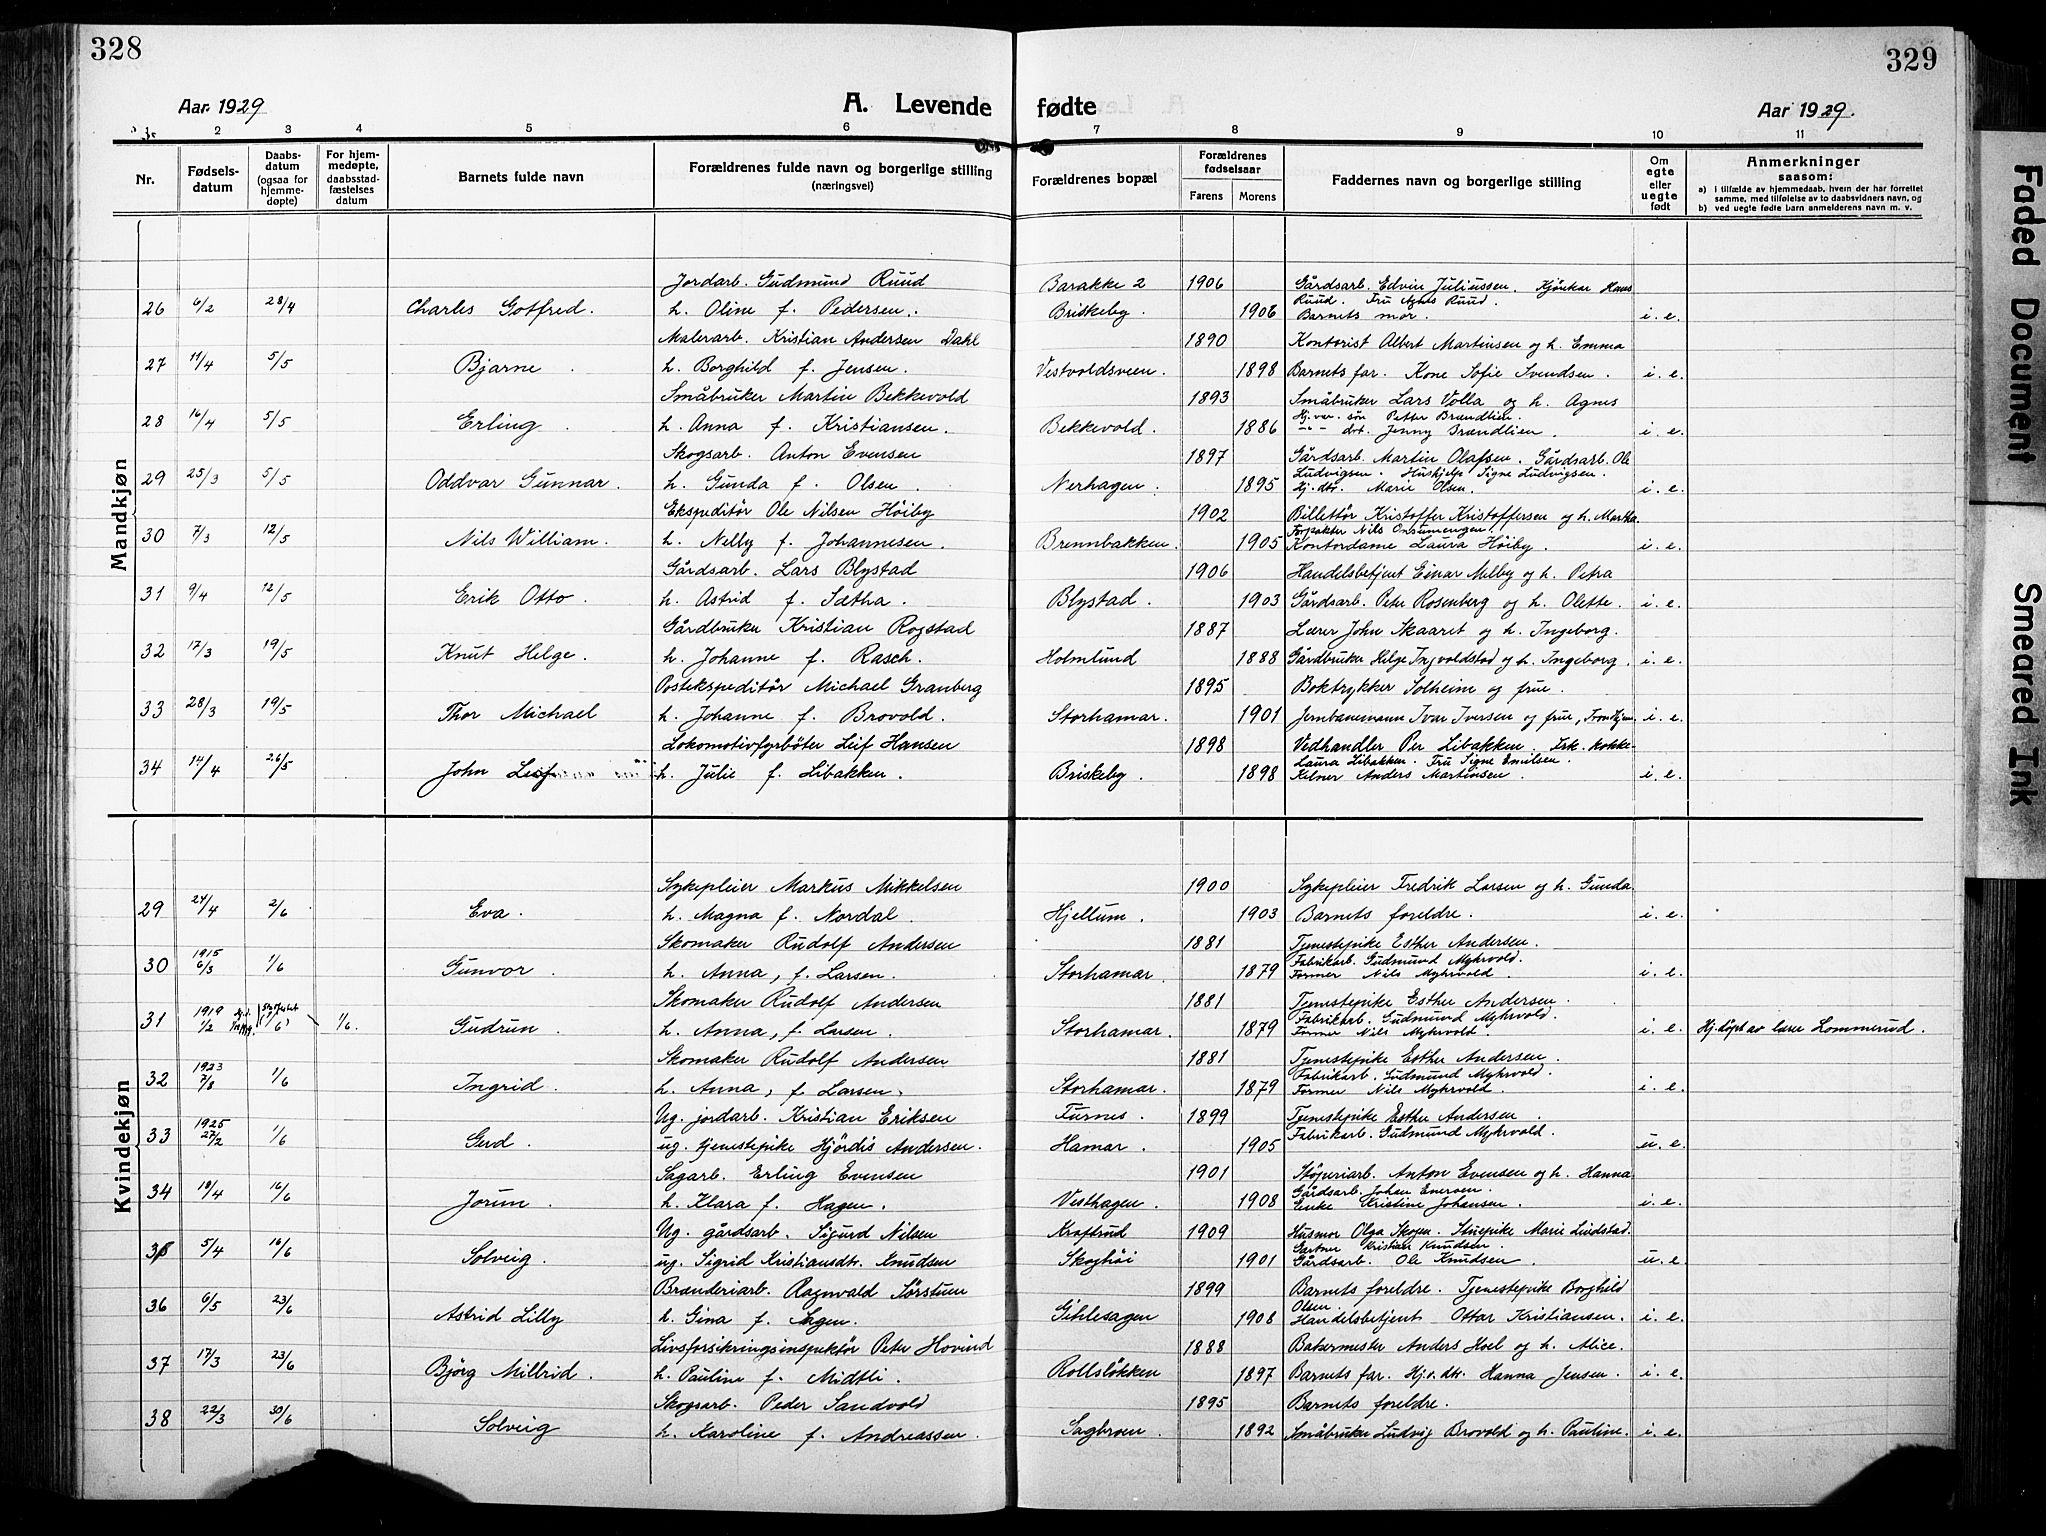 328
329
Aar 1929
A. Levende fødte
Aar 1929.
2 3 4 5 6 7 8 9 10 11
Nr.
Fødsels-datum
Daabs-datum (ogsaa for hjemme-døpte)
For hjem-medøpte, daabsstad-fæstelses datum
Barnets fulde navn
Forældrenes fulde navn og borgerlige stilling (næringsvei)
Forældrenes bopæl
Forældrenes fødselsaar
Farens Morens
Faddernes navn og borgerlige stilling
Om egte eller uegte født
Anmerkninger saasom:
a) i tilfælde av hjemmedaab, hvem der har forrettet samme, med tilføielse av to daabsvidners navn, og
b) ved uegte fødte barn anmelderens navn m. v.
Mandkjøn
Jordarb. Gudmund Ruud Barakke 2 1906 Gårdsarb. Edvin Juliussen. Hans
Ruud. Fru Agnes Ruud.
26 6/2 28/4 Charles Gotfred. h. Oline f. Pedersen. Briskeby. 1906 Barnets mor. i. e.
Malerarb. Kristian Andersen Dahl 1890 Kontorist Albert Martinsen og h. Emma
27 11/4 5/5 Bjarne. h. Borghild f. Jensen. Vestvoldsveien. 1898 Barnets far. Kone Sofie Svendsen. i. e.
Småbruker Martin Bekkevold 1893 Småbruker Lars Volla og h. Agnes
Hj.vær. søn Petter Brændlien.
28 16/4 5/5 Erling. h. Anna f. Kristiansen. Bekkevold. 1886 -"- dtr. Jenny Brændlien. i. e.
Skogsarb. Anton Evensen 1897 Gårdsarb. Martin Olafsen. Gårdsarb. Ole
Ludvigsen. Hushjelp Signe Ludvigsen.
29 25/3 5/5 Oddvar Gunnar. h. Gunda f. Olsen. Nerhagen. 1895 Hj. dtr. Marie Olsen. i. e.
Ekspeditør Ole Nilsen Höiby 1902 Billettør Kristoffer Kristoffersen og h. Martha.
Forpakter Nils
30 7/3 12/5 Nils William. h. Nelly f. Johannesen. Brennbakken. 1905 Kontordame Laura Höiby. i. e.
Gårdsarb. Lars Blystad 1906 Handelsbetjent Einar Melby og h. Petra
31 9/4 12/5 Erik Otto. h. Astrid f. Sætha. Blystad. 1903 Gårdsarb. Peter Rosenberg og h. Olette. i. e.
Gårdbruker Kristian Rogstad 1887 Lærer John Skaaret og h. Ingeborg.
32 17/3 19/5 Knut Helge. h. Johanne f. Rasch. Holmlund 1888 Gårdbruker Helge Ingvoldstad og h. Ingeborg. i. e.
Postekspeditör Michael Granberg 1895 Boktrykker Solheim og frue.
33 28/3 19/5 Thor Michael h. Johanne f. Brovold. Storhamar. 1901 Jernbanemann Ivar Iversen og frue, Trondhjem i. e.
Lokomotivfyrböter Leif Hansen 1898 Vedhandler Per Libakken. Frk. kokke-
Laura Libakken. Fru Signe Emilsen.
34 14/4 26/5 John Leif h. Julie f. Libakken. Briskeby. 1898 Kelner Anders Martinsen. i. e.
Kvindekjøn
Sykepleier Markus Mikkelsen 1900 Sykepleier Fredrik Larsen og h. Gunda
29 24/4 2/6 Eva. h. Magna f. Nordal. Hjellum. 1903 Barnets foreldre. i. e.
Skomaker Rudolf Andersen 1881 Tjenestepike Esther Andersen.
Fabrikarb. Gudmund Myhrvold.
30 1915 6/3 1/6 Gunvor. h. Anna, f. Larsen. Storhamar 1879 Former Nils Myhrvold. i. e.
Skomaker Rudolf Andersen 1881 Tjenestepike Esther Andersen.
Fabrikarb. Gudmund Myhrvold.
31 1919 1/2 (1/6) 1/6. Gudrun. h. Anna, f. Larsen. Storhamar. 1879 Former Nils Myhrvold. i. e. Hj.döpt av lærer Lommerud.
Skomaker Rudolf Andersen 1881 Tjenestepike Esther Andersen.
Fabrikarb. Gudmund Myhrvold.
32 1923 7/8 1/6 Ingrid. h. Anna, f. Larsen. Storhamar. 1879 Former Nils Myhrvold. i. e.
Ug. jordarb. Kristian Eriksen Furnes. 1899 Tjenestepike Esther Andersen.
Fabrikarb. Gudmund Myhrvold.
33 1925 27/2 1/6 Gerd. ug. tjenestepike Hjördis Andersen. Hamar. 1905 u. e.
Sagarb. Erling Evensen 1901 Støperiarb. Anton Evensen og h. Hanna
Gårdsarb. Johan Eneroen.
34 18/4 16/6 Jorun. h. Klara f. Hagen. Vesthagen. 1908 Enke Kristine Johansen. i. e.
Ug. gårdsarb. Sigurd Nilsen Kraftrud 1909 Husmor Olga Skogen. Stuepike Marie Lindstad.
Gartner Kristian Knudsen.
35 5/4 16/6 Solveig. ug. Sigrid Kristiansdtr. Knudsen Skoghöi 1901 Gårdsarb. Ole Knudsen. u. e.
Brænderiarb. Ragnvald Sörstuen 1899 Barnets foreldre. Tjenestepike Borghild
Olsen
36 6/5 23/6 Astrid Lilly h. Gina f. Sagen. Gihlesagen 1908 Handelsbetjent Ottar Kristiansen. i. e.
Livsforsikringsinspektör Peter Hovind 1888 Bakermester Anders Hoel og h. Alice.
37 17/3 23/6 Björg Millrid. h. Pauline f. Midtli. Rollsløkken 1897 Barnets far. Hj.v. dtr. Hanna Jensen. i. e.
Skogsarb. Peder Sandvold 1895 Barnets foreldre.
38 22/3 30/6 Solveig h. Karoline f. Andreassen. Sagbroen. 1892 Småbruker Ludvig Brovold og h. Pauline. i. e.
Faded Document
Smeared Ink